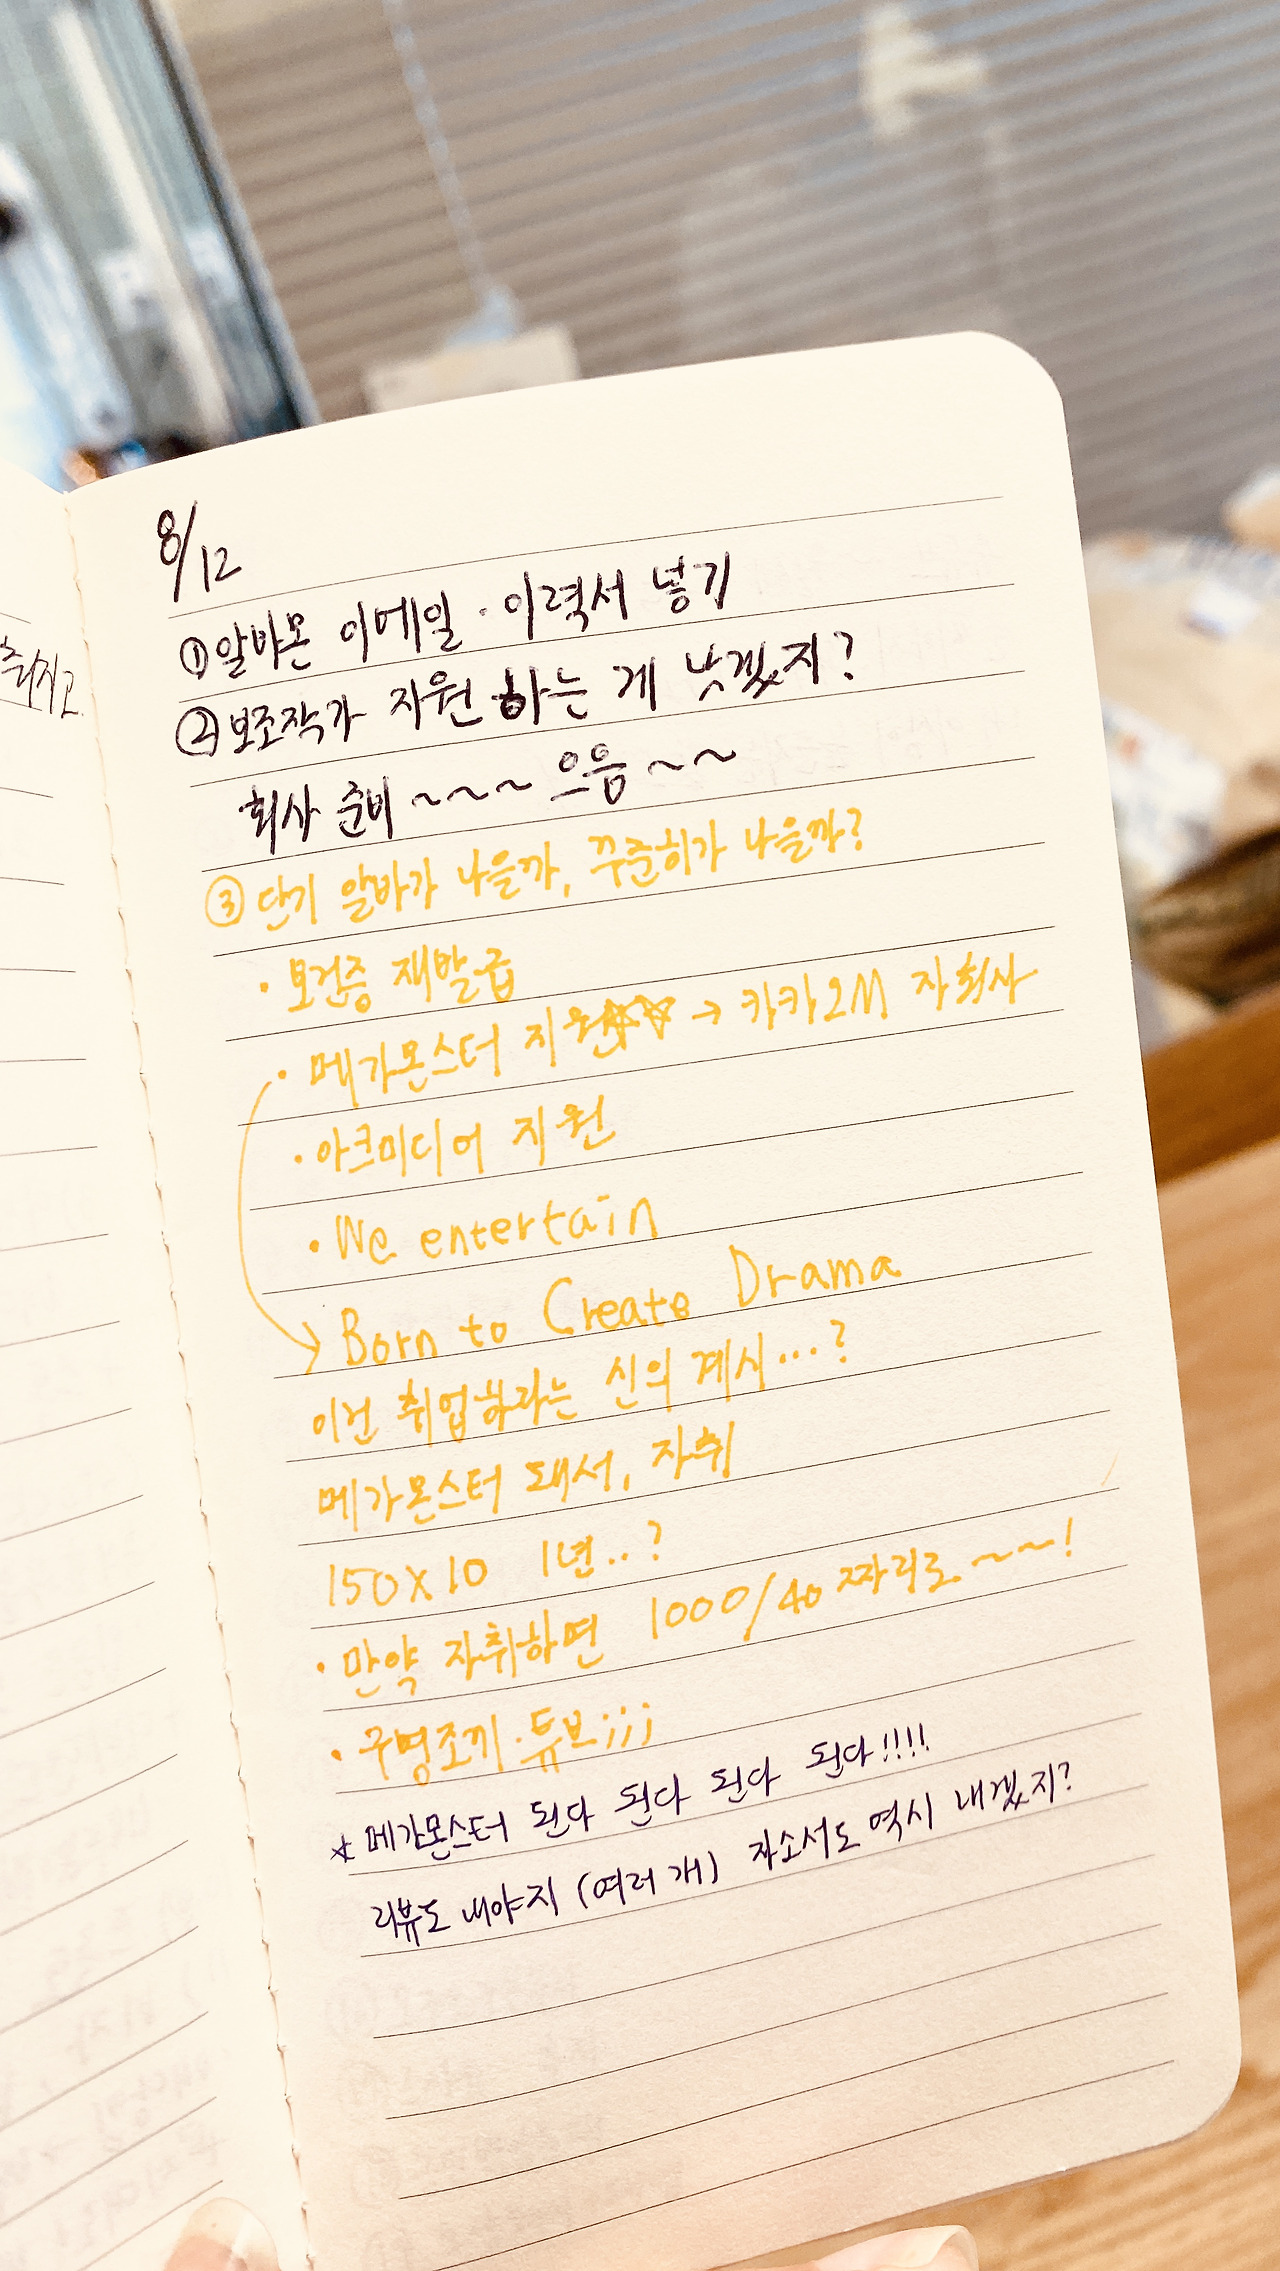 8/12
① 알바몬 이메일 · 이력서 넣기
② 보조작가 지원 하는 게 낫겠지?
회사 준비 ~~~ 으음 ~~
③ 단기 알바가 나을까, 꾸준히가 나을까?
· 보건증 재발급
· 메가몬스터 지원☆☆ → 카카오M 자회사
· 아크미디어 지원
· We entertain
→ Born to Create Drama
이건 취업하라는 신의 계시...?
메가몬스터 돼서, 자취
150X10 1년..?
· 만약 자취하면 1000/40 짜리로 ~~~!
· 구명조끼 · 튜브;;;
☆ 메가몬스터 된다 된다 된다 된다!!!!
리뷰도 내야지 (여러 개) 자소서도 역시 내겠지?